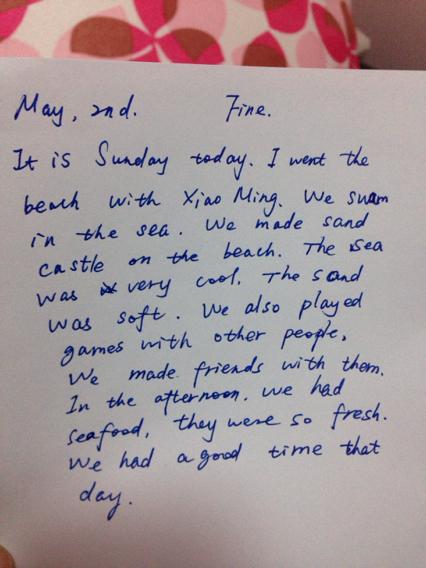 May, 2nd. Fine.
It is Sunday today. I went the
beach with Xiao Ming. We swam
in the sea. We made sand
castle on the beach. The sea
was very cool. The sand
was soft. We also played
games with other people.
We made friends with them.
In the afternoon. we had
seafood, they were so fresh.
We had a good time that
day.